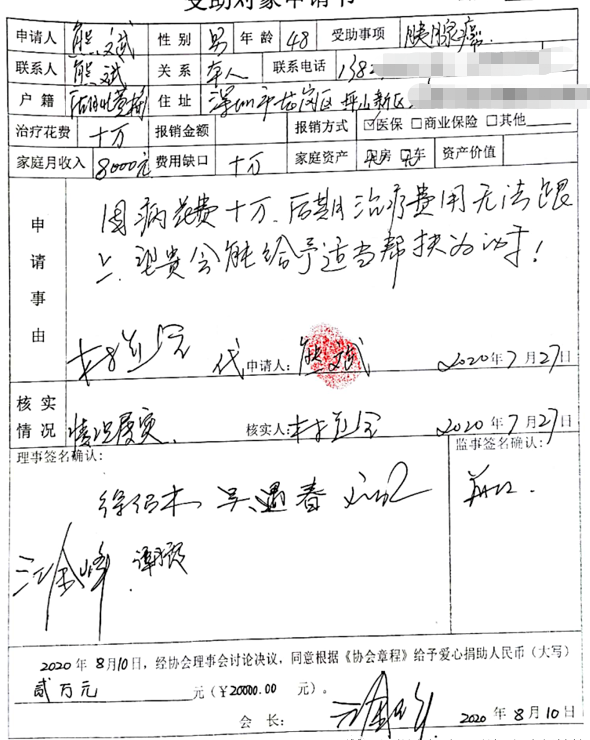 受助对象申请书
申请人 熊文斌 性别 男 年龄 48 受助事项 胰腺癌
联系人 熊文斌 关系 本人 联系电话 138
户籍 住址 深圳市龙岗区坪山新区
治疗花费 十万 报销金额 报销方式 ☑医保 □商业保险 □其他
家庭月收入 8000元 费用缺口 十万 家庭资产 房 车 资产价值
申请事由
因病花费十万.后期治疗费用无法跟
上.望贵会能给予适当帮扶为谢!
代 申请人: 2020年7月27日
核实情况 情况属实. 核实人: 2020年7月27日
理事签名确认: 监事签名确认:
吴遇春
2020年8月10日,经协会理事会讨论决议,同意根据《协会章程》给予爱心捐助人民币(大写)
贰万元 元(¥20000.00 元)。
会 长: 2020年8月10日